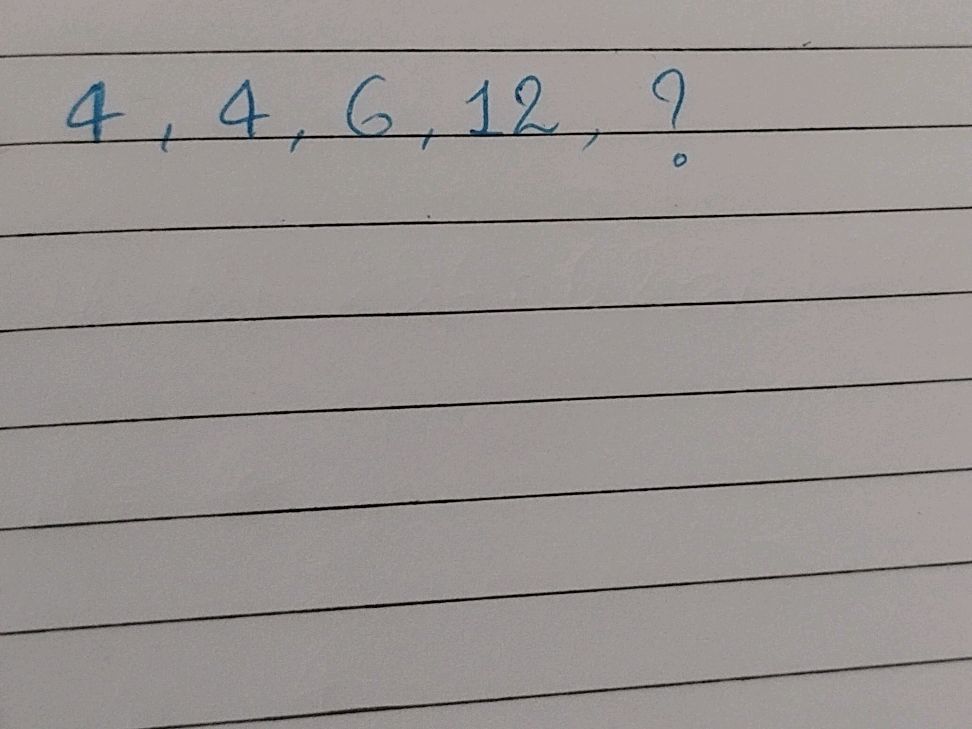 4, 4, 6, 12, ?